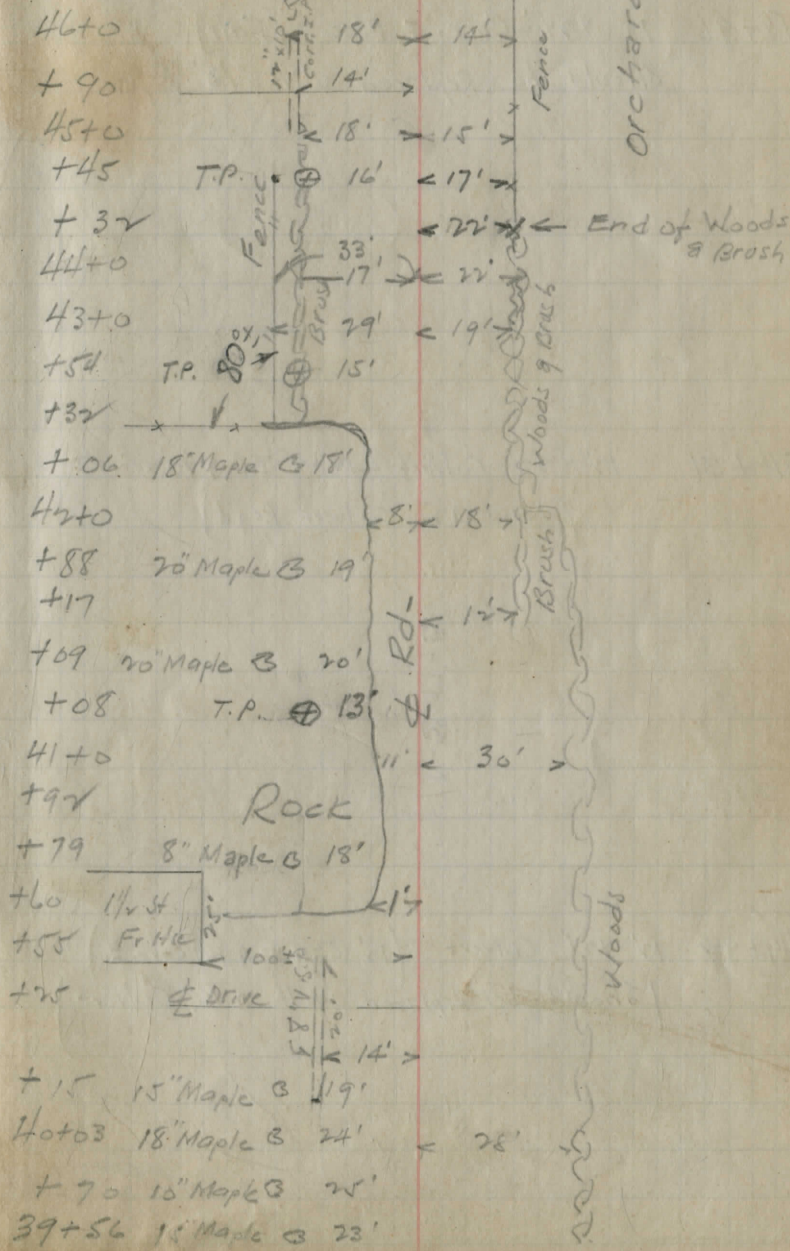 46+0 18' 14'
12"x10' Corr. I.P.
Fence
Orchard
+90 14'
45+0 18' 15'
+45 T.P. 16' 17'
Fence
+32 22' End of Woods
& Brush
33'
44+0 17' 22'
Brush
43+0 29' 19'
Woods & Brush
80%
+54 T.P. 15'
+32
+06 18" Maple 18'
42+0 8' 18'
+88 20" Maple 19'
Brush
+17 12'
Rd-
+09 20" Maple 20'
+08 T.P. 13' ℄
41+0 11' 30'
+92
Rock
+79 8" Maple 18'
+60 1½ St 1'
25'
Fr Hse
Woods
+55 100±
+25 ℄ Drive
20'
14'
+15 15" Maple 19'
40+03 18" Maple 24' 28'
+70 10" Maple 25'
39+56 Maple 23'